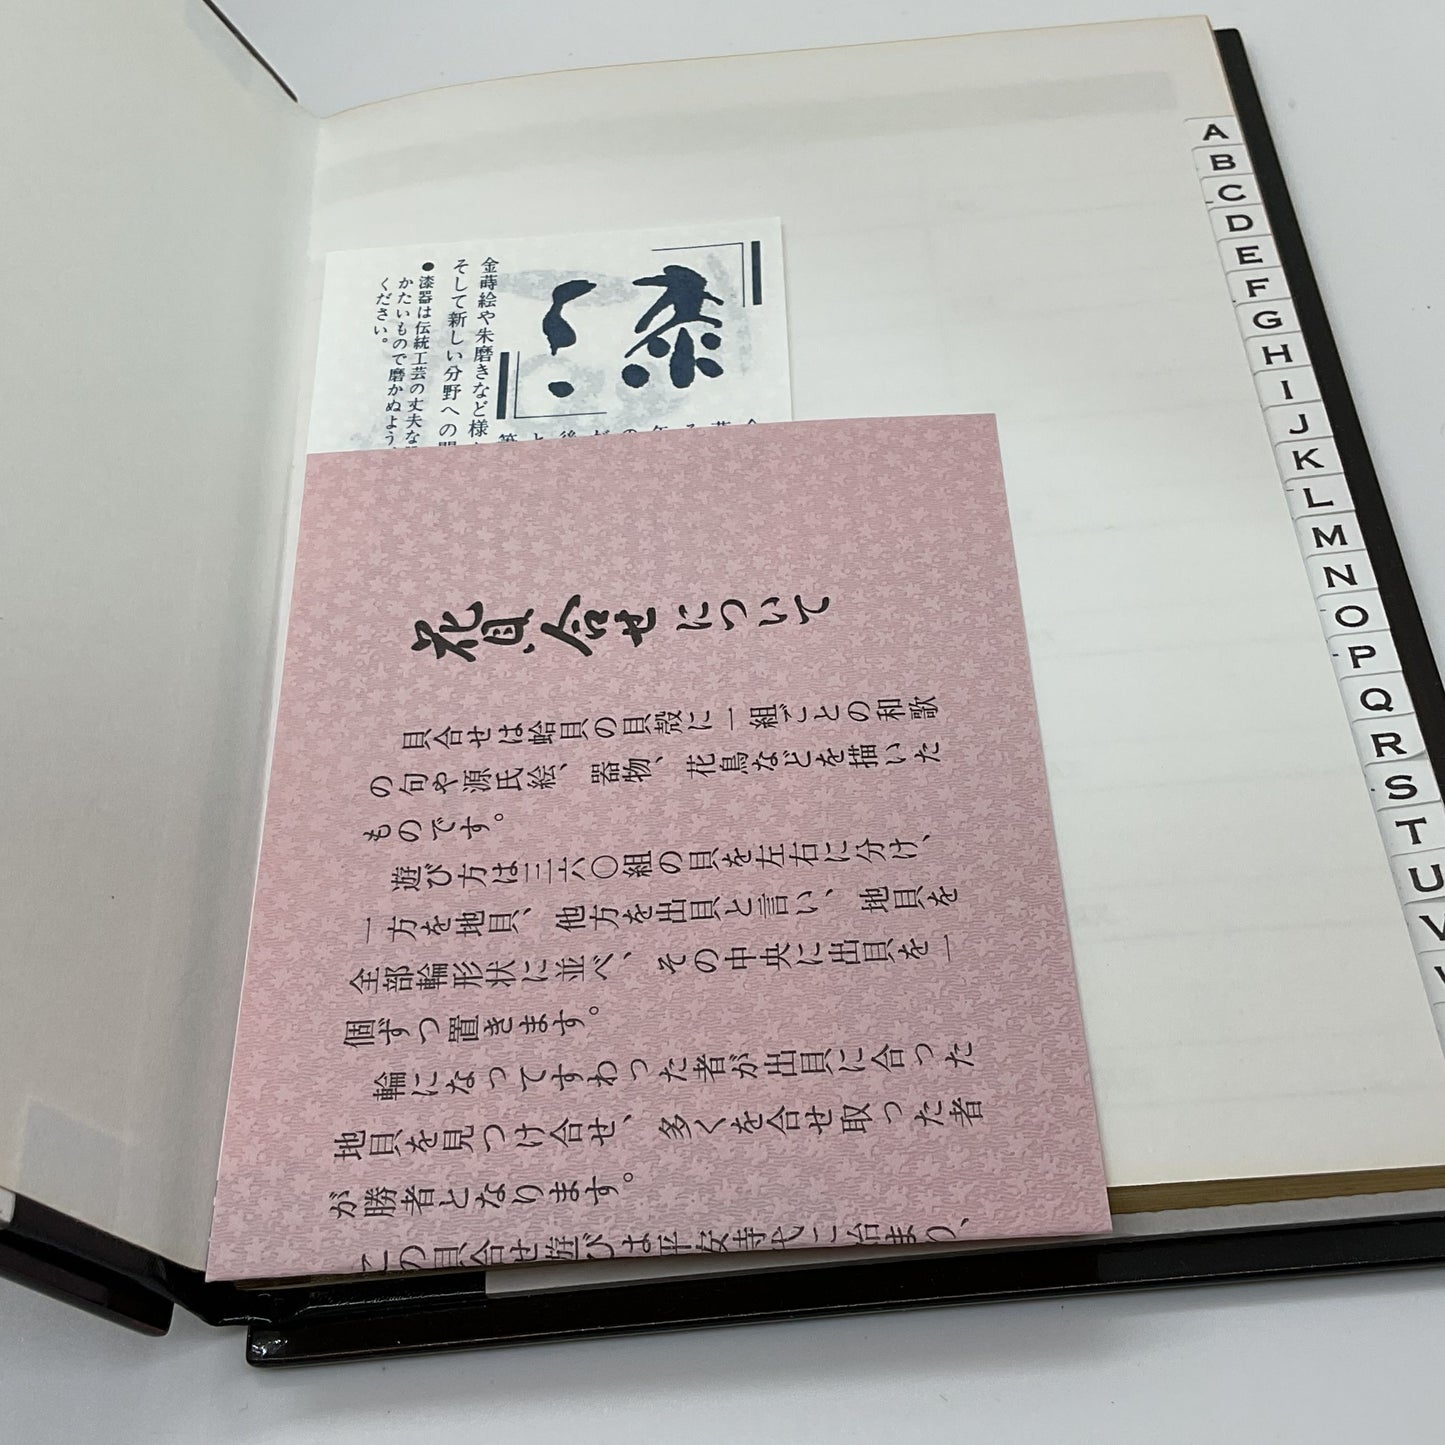 漆
金蒔絵や朱磨きなど様
そして新しい分野への
●漆器は伝統工芸の丈夫な
かたいもので磨かぬよう
ください。
花貝合せについて
貝合せは蛤貝の貝殻に一組ごとの和歌
の句や源氏絵、器物、花鳥などを描いた
ものです。
遊び方は三六〇組の貝を左右に分け、
一方を地貝、他方を出貝と言い、地貝を
全部輪形状に並べ、その中央に出貝を一
個ずつ置きます。
輪になってすわった者が出貝に合った
地貝を見つけ合せ、多くを合せ取った者
が勝者となります。
この貝合せ遊びは平安時代に始まり、
A
B
C
D
E
F
G
H
I
J
K
L
M
N
O
P
Q
R
S
T
U
V